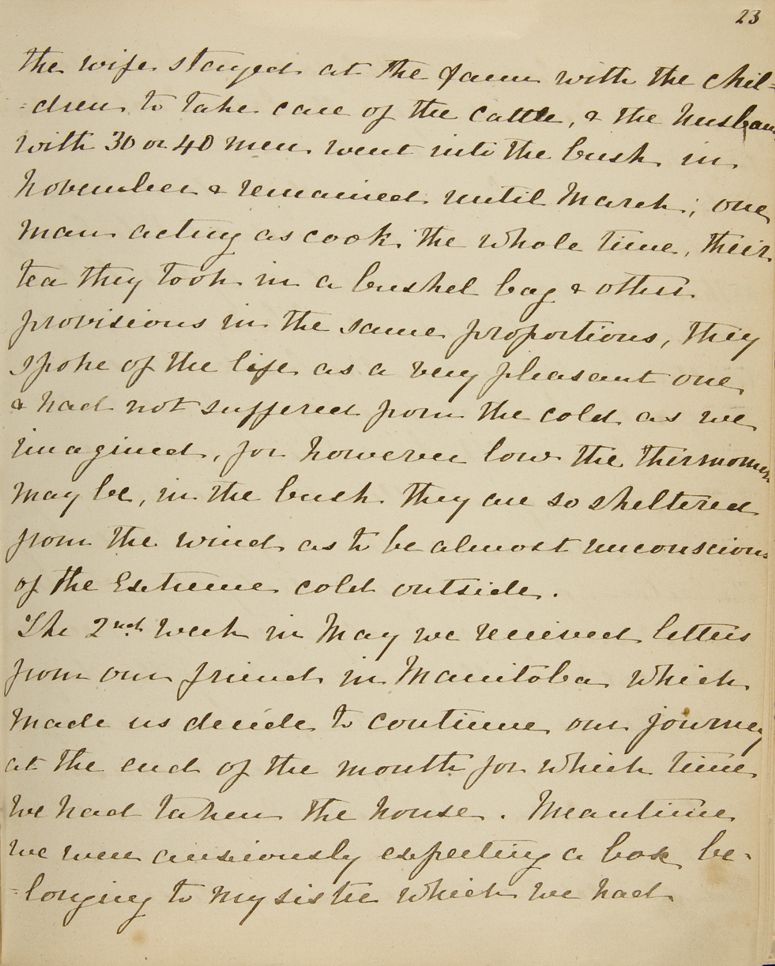 23
the wife stayed at the farm with the chil=
=dren to take care of the cattle, & the husban
with 30 or 40 men went into the bush in
November & remained until March; one
man acting as cook the whole time, their
tea they took in a bushel bag & other
provisions in the same proportions, they
spoke of the life as a very pleasant one
& had not suffered from the cold as we
imagined, for however low the thermome
may be, in the bush they are so sheltered
from the wind as to be almost unconscious
of the Extreme cold outside.
The 2nd week in May we received letters
from our friend in Manitoba which
made us decide to continue our journey
at the end of the month for which time
we had taken the house. Meantime
we were anxiously expecting a box be-
=longing to my sister which we had